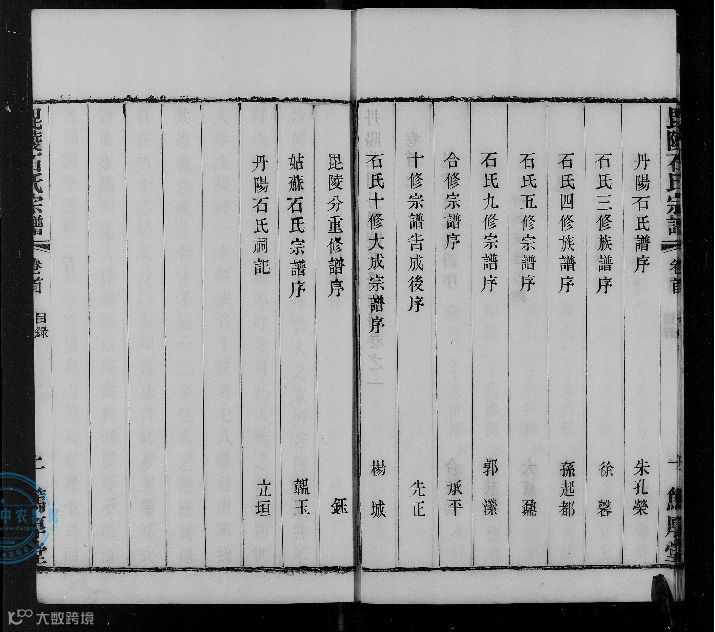 毘陵石氏宗譜
卷首
目錄
丹陽石氏譜序 朱孔榮
石氏三修族譜序 徐馨
石氏四修族譜序 孫起都
石氏五修宗譜序 鼐
石氏九修宗譜序 郭濚
合修宗譜序 承平
十修宗譜告成後序 先正
石氏十修大成宗譜序 楊城
毘陵分重修譜序 鈺
姑蘇石氏宗譜序 韞玉
丹陽石氏祠記 立垣
毘陵石氏宗譜
卷首
目錄
大數跨境